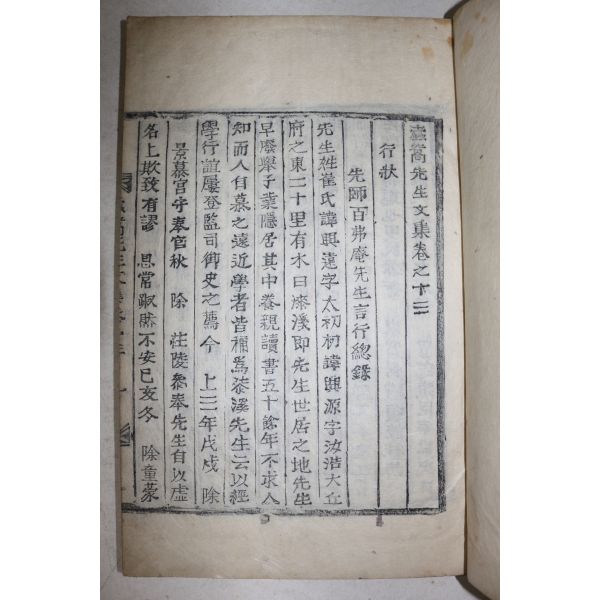 嵩先生文集卷之十
行狀
先師百弗庵先生言行總錄
先生姓崔氏諱興遠字太初初諱興源字汝浩大丘
府之東二十里有水曰漆溪即先生世居之地先生
早廢舉子業隱居其中養親讀書五十餘年不求人
知而人自慕之遠近學者皆稱爲漆溪先生云以經
學行誼屢登監司御史之薦今 上二年戊戌 除
景慕宮守奉官秋 除 莊陵參奉先生自以虛
名上欺致有謬 恩常踧然不安已亥冬 除童蒙